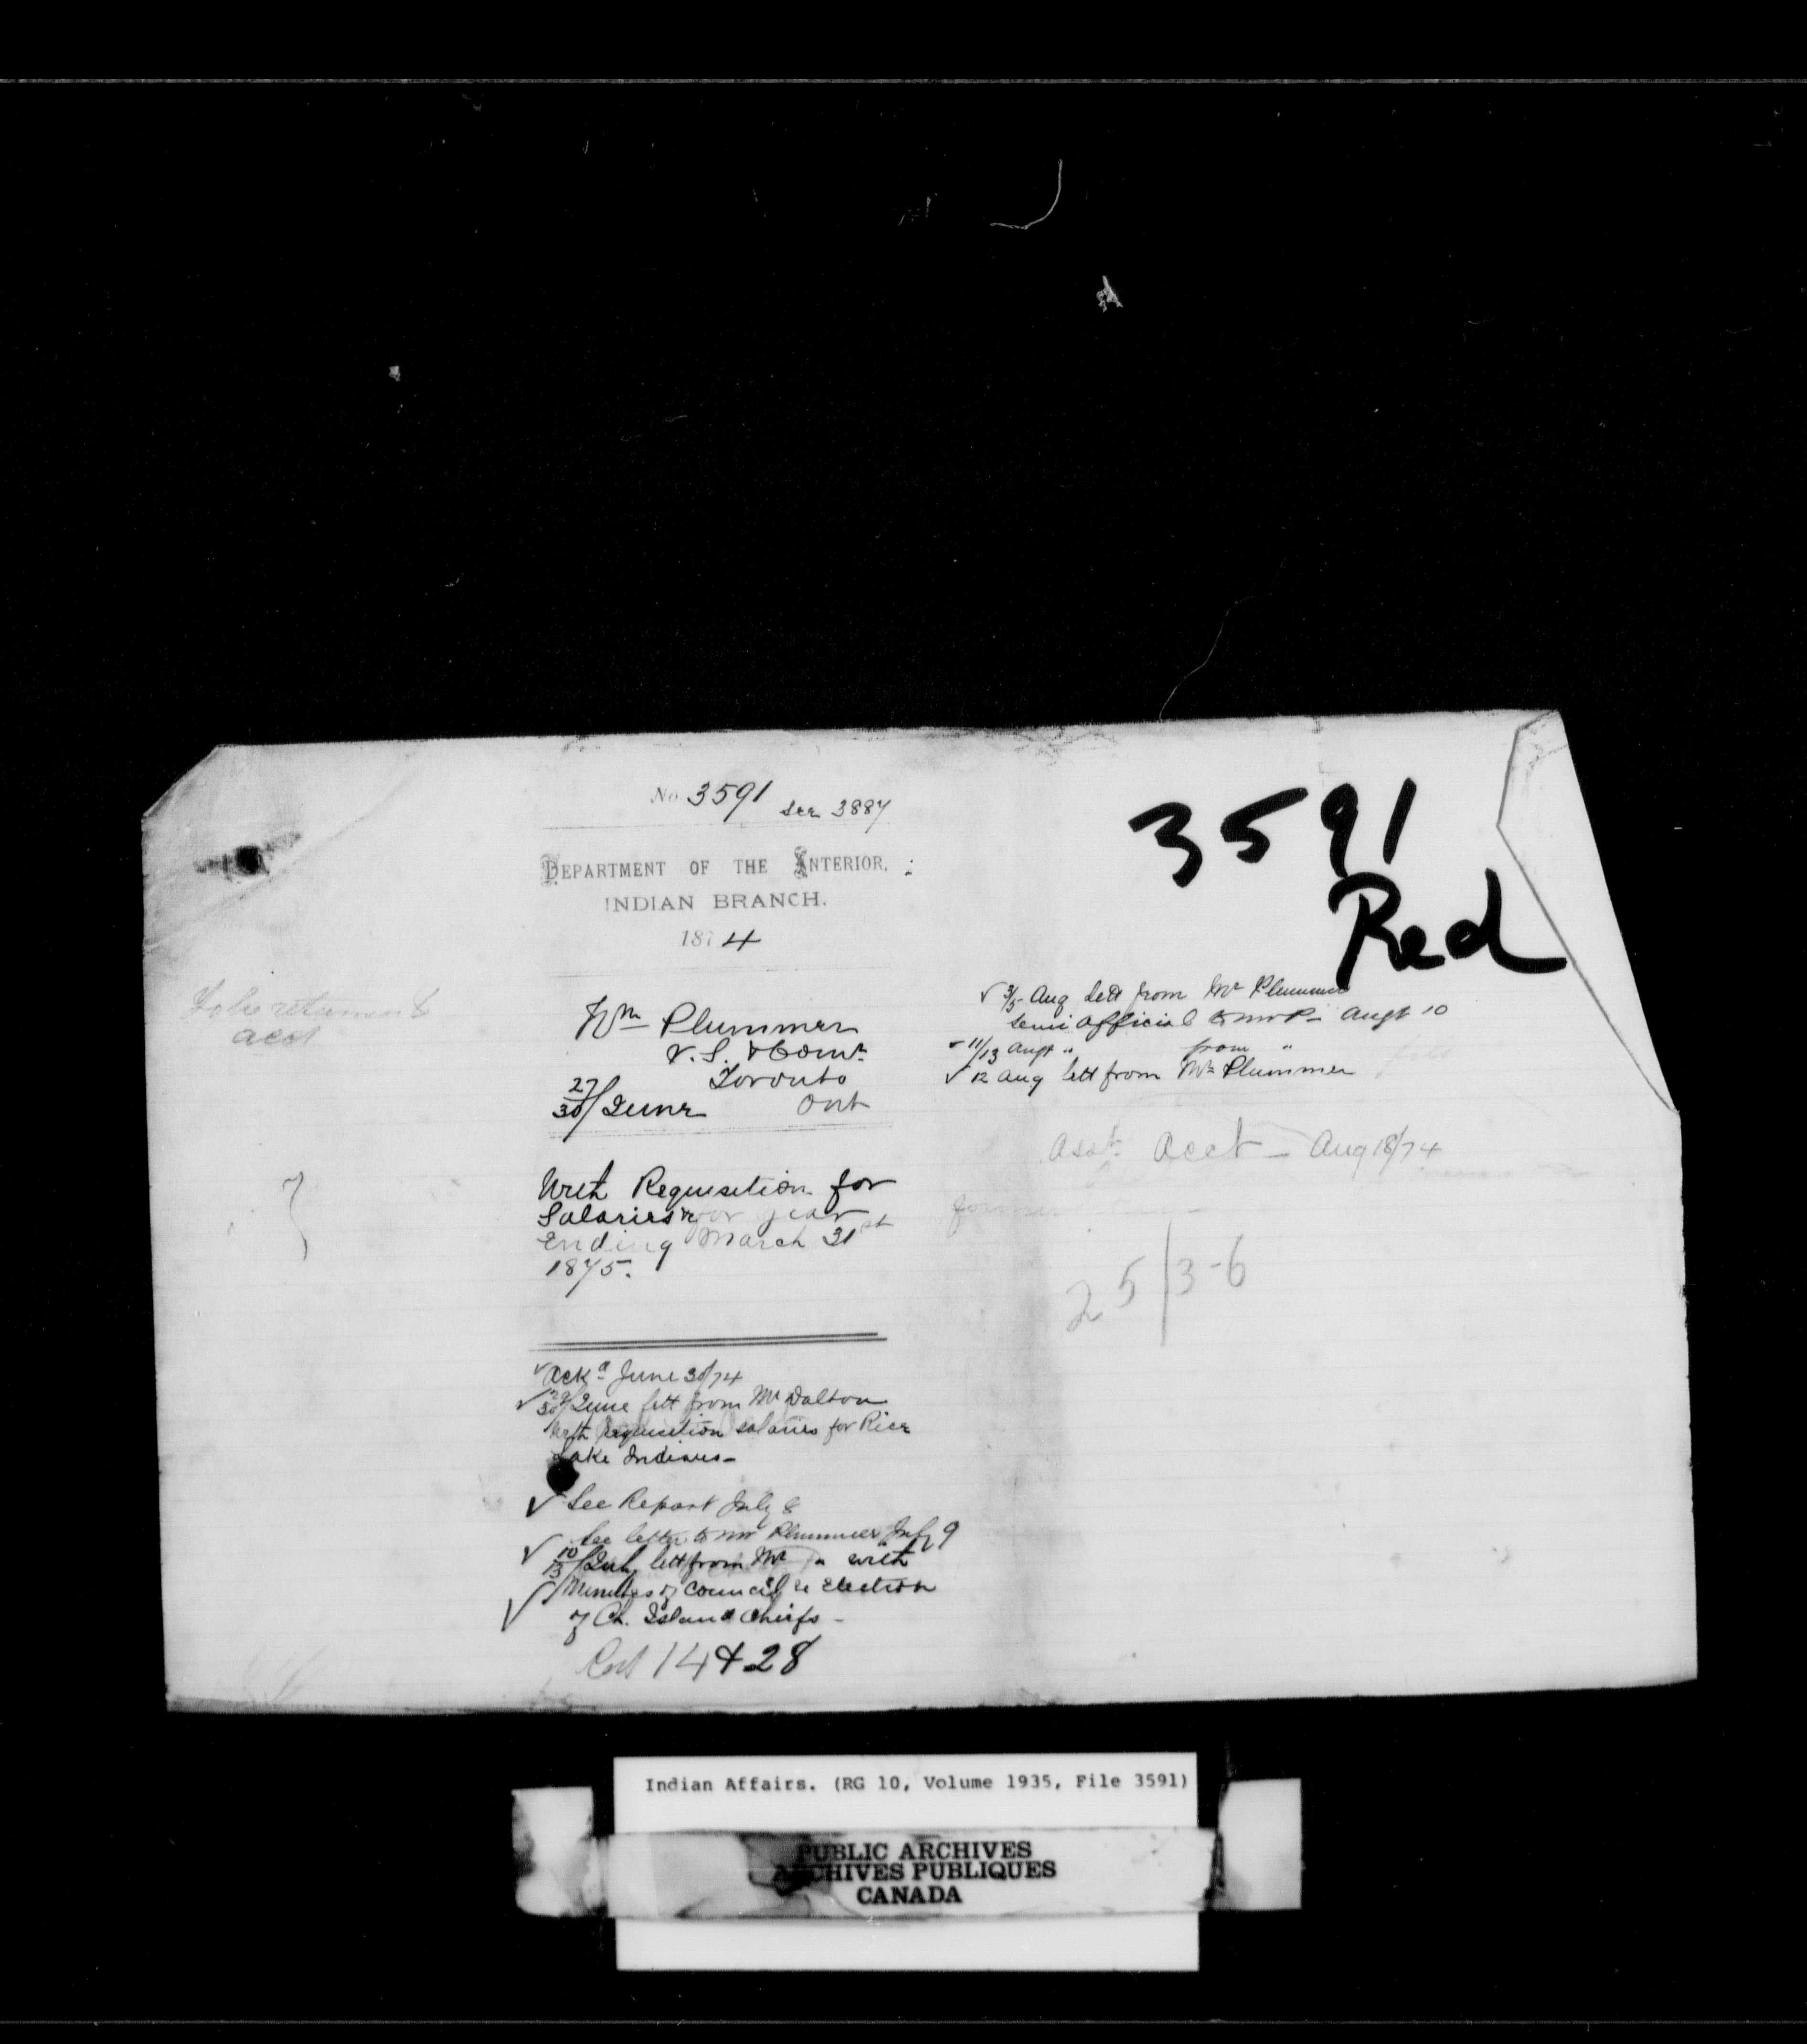 No 3591 see 3887
DEPARTMENT OF THE INTERIOR.
INDIAN BRANCH.
1874
Wm Plummer
V. S. & Comr
Toronto
27/30 June Ont
With Requisition for
Salaries &c for year
ending March 31st
1875.
Ackd June 30/74
29/30 June lett from Mr Dalton
with requisition salaries for Rice
Lake Indians-
See Report July 8
See letter to Mr Plummer July 9
10/13 July lett from Mr " with
Minutes of Council re election
of Ch. Island Chiefs -
14 & 28
To be returned to
acct
3591
Red
3/5 Aug lett from Mr Plummer
semi official to Mr P- Augt 10
11/13 Augt " from "
12 Aug lett from Mr Plummer
Asst Acct - Aug 18/74
25/3-6
Indian Affairs. (RG 10, Volume 1935, File 3591)
PUBLIC ARCHIVES
ARCHIVES PUBLIQUES
CANADA